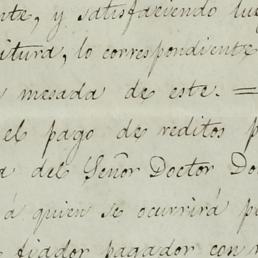 nte, y satisfaciendo lue
itura, lo correspondiente
mesada de este. =
el pago de reditos p
a del Señor Doctor Do
á quien se ocurrirá p
fiador pagador con